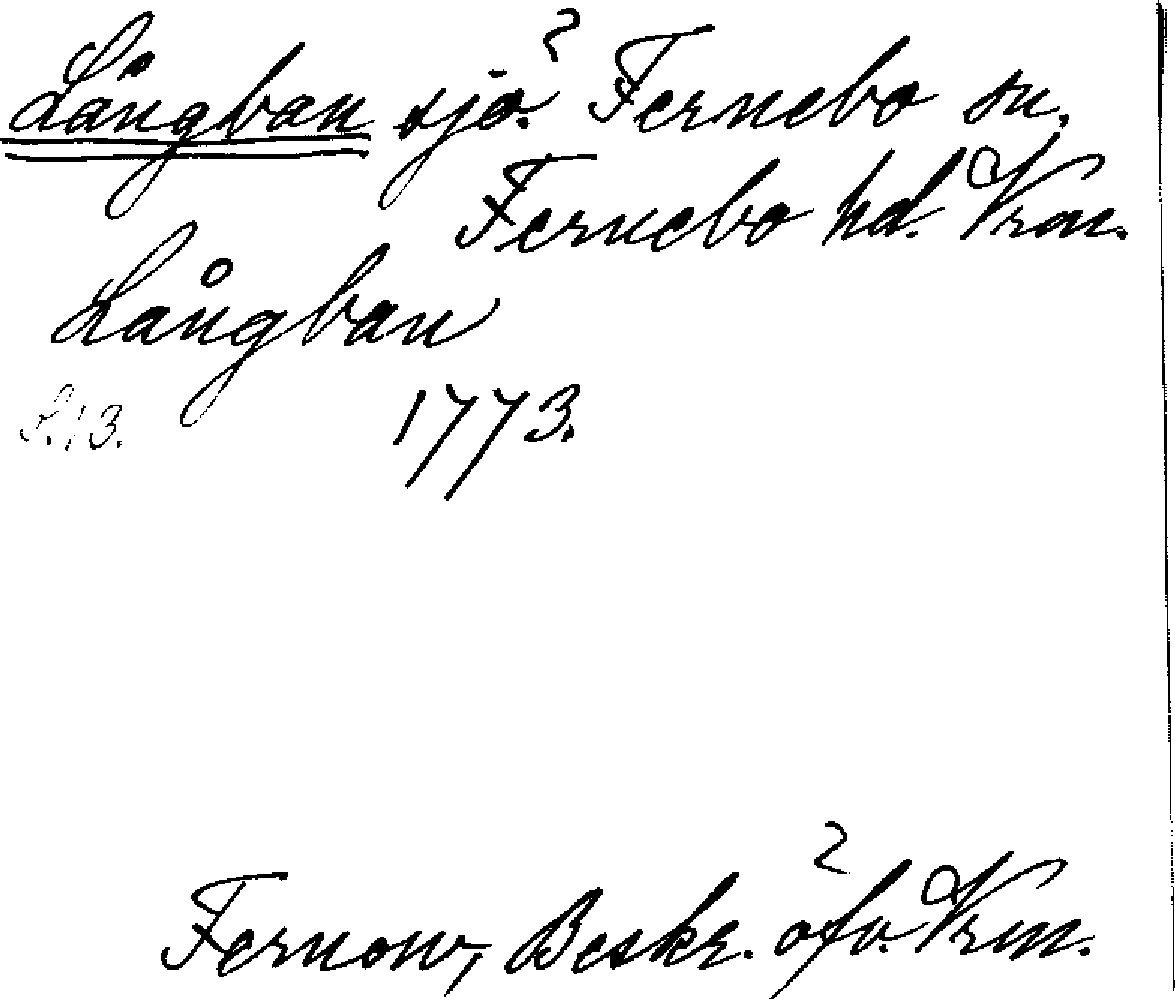 Långban sjö. Fernebo sn.
Fernebo hd. Vrm.
Långban
S. 13. 1773.
Fernow, Beskr. öfv. Vrm.